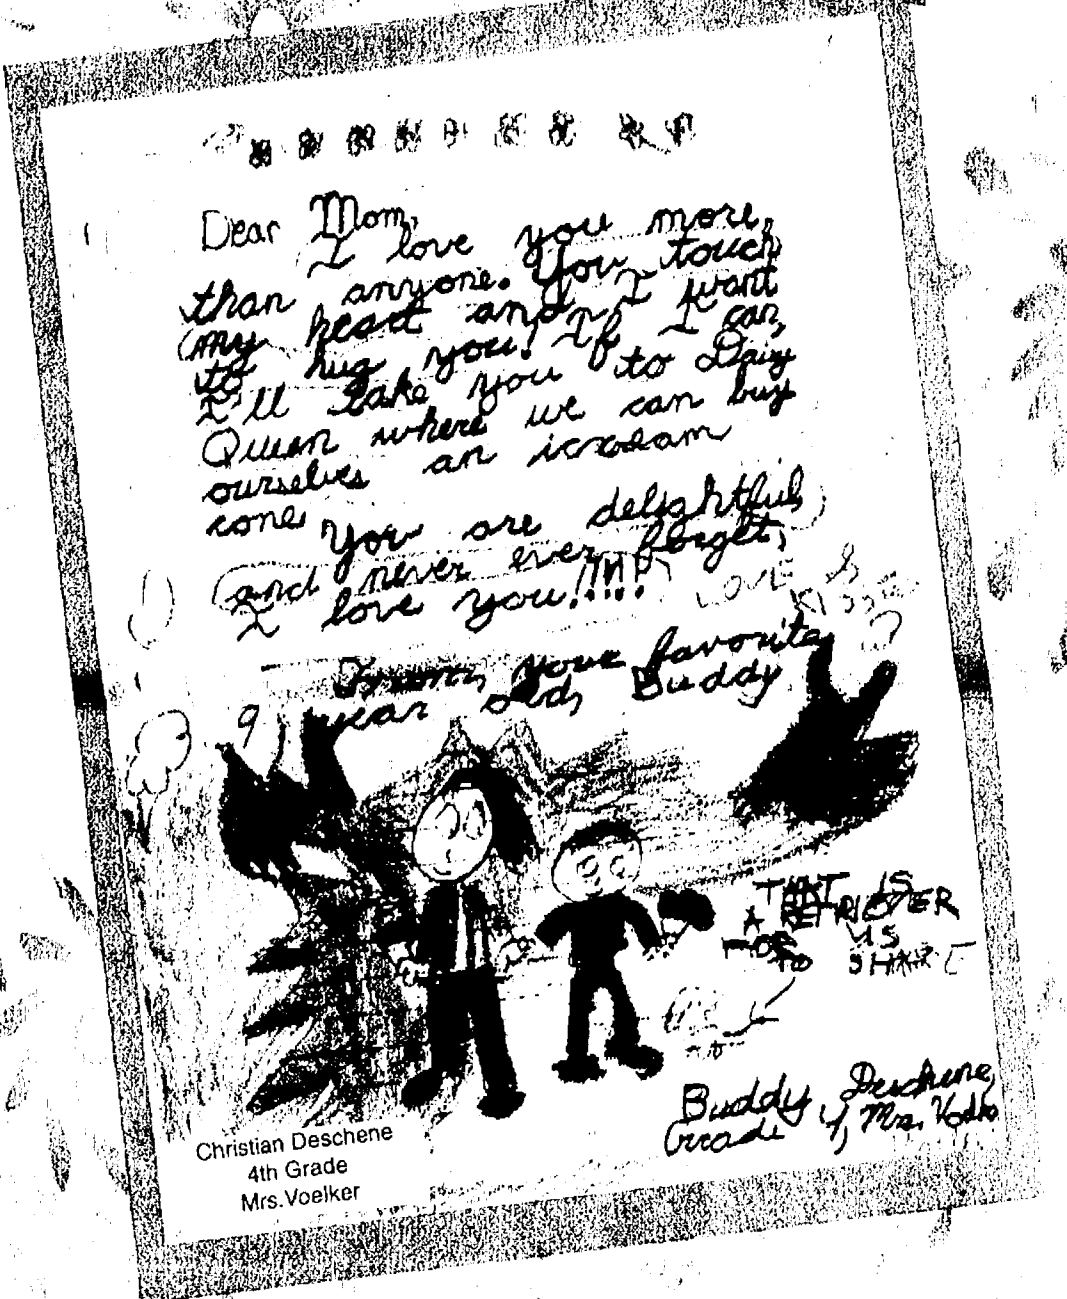 Dear Mom,
I love you more,
than anyone. You touch
my heart and I want
to hug you! If I can,
I'll take you to Dairy
Queen where we can buy
ourselves an icream
cone
You are delightful,
and never ever forget,
I love you!!!!!
LOVE &
KISSES
From, your favorite
9 year old, Buddy
THAT IS
A RETRIEVER
FOR US
TO SHARE
Buddy Deschene,
Grade 4, Mrs.
Christian Deschene
4th Grade
Mrs.Voelker